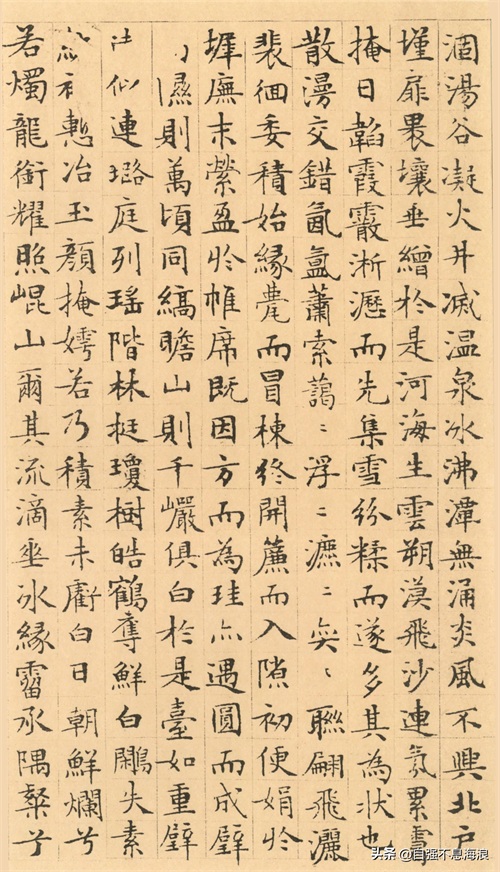 涸湯谷凝火井滅温泉冰沸潭無涌炎風不興北户
墐扉壤垂繒於是河海生雲朔漠飛沙連氛累靄
掩日韜霞霰淅瀝而先集雪紛糅而遂多其為狀也
散漫交錯氤氳蕭索藹〻浮〻瀌〻奕〻聯翩飛灑
裴徊委積始緣甍而冒棟終開簾而入隙初便娟於
墀廡末縈盈於帷席既因方而為珪亦遇圓而成璧
隰則萬頃同縞瞻山則千巖俱白於是臺如重璧
似連璐庭列瑶階林挺瓊樹皓鶴奪鮮白鷴失素
慙冶玉顏掩嫮若乃積素未虧白日朝鮮爛兮
若燭龍銜耀照崐山爾其流滴垂冰緣霤承隅粲兮
头条 @自强不息海浪